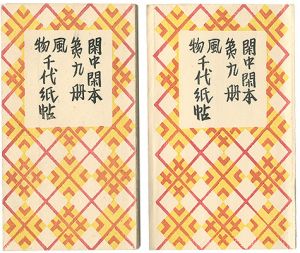 閑中閑本
第九册
風
物千代紙帖
閑中閑本
第九册
風
物千代紙帖